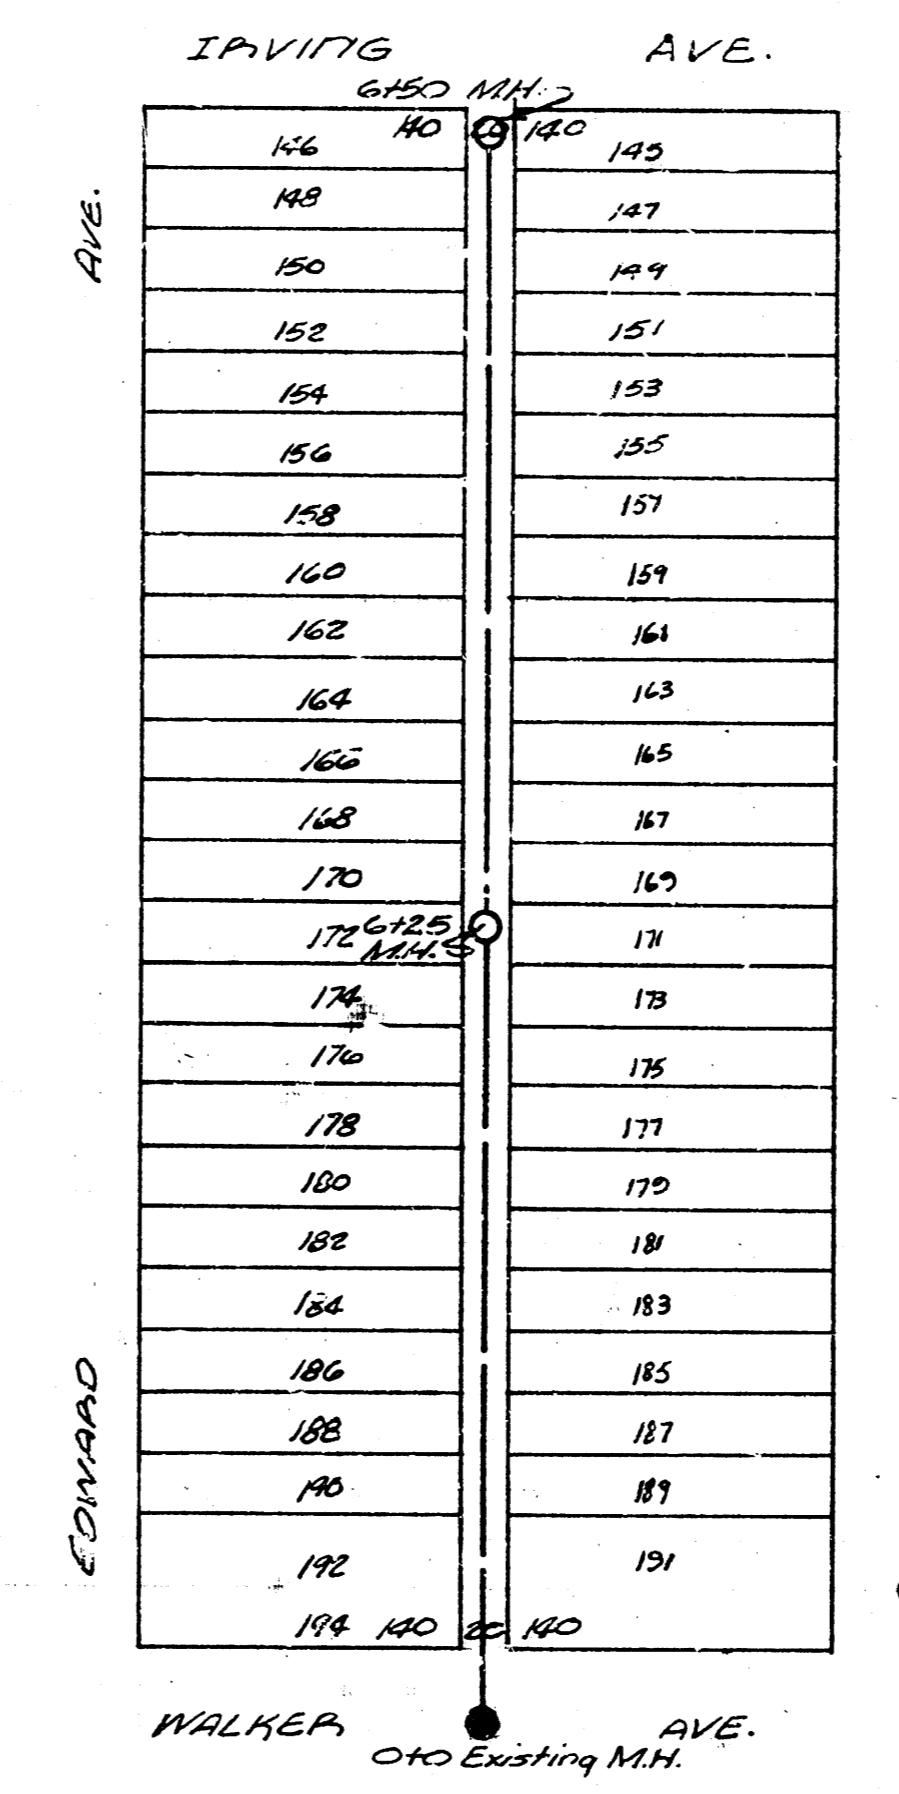 IRVING AVE.
6+50 M.H.
140 20 140
146 145
AVE.
148 147
150 149
152 151
154 153
156 155
158 157
160 159
162 161
164 163
166 165
168 167
170 169
172 6+25 171
M.H.
174 173
176 175
178 177
180 179
182 181
184 183
186 185
188 187
EDWARD
190 189
192 191
194 140 20 140
WALKER AVE.
0+0 Existing M.H.